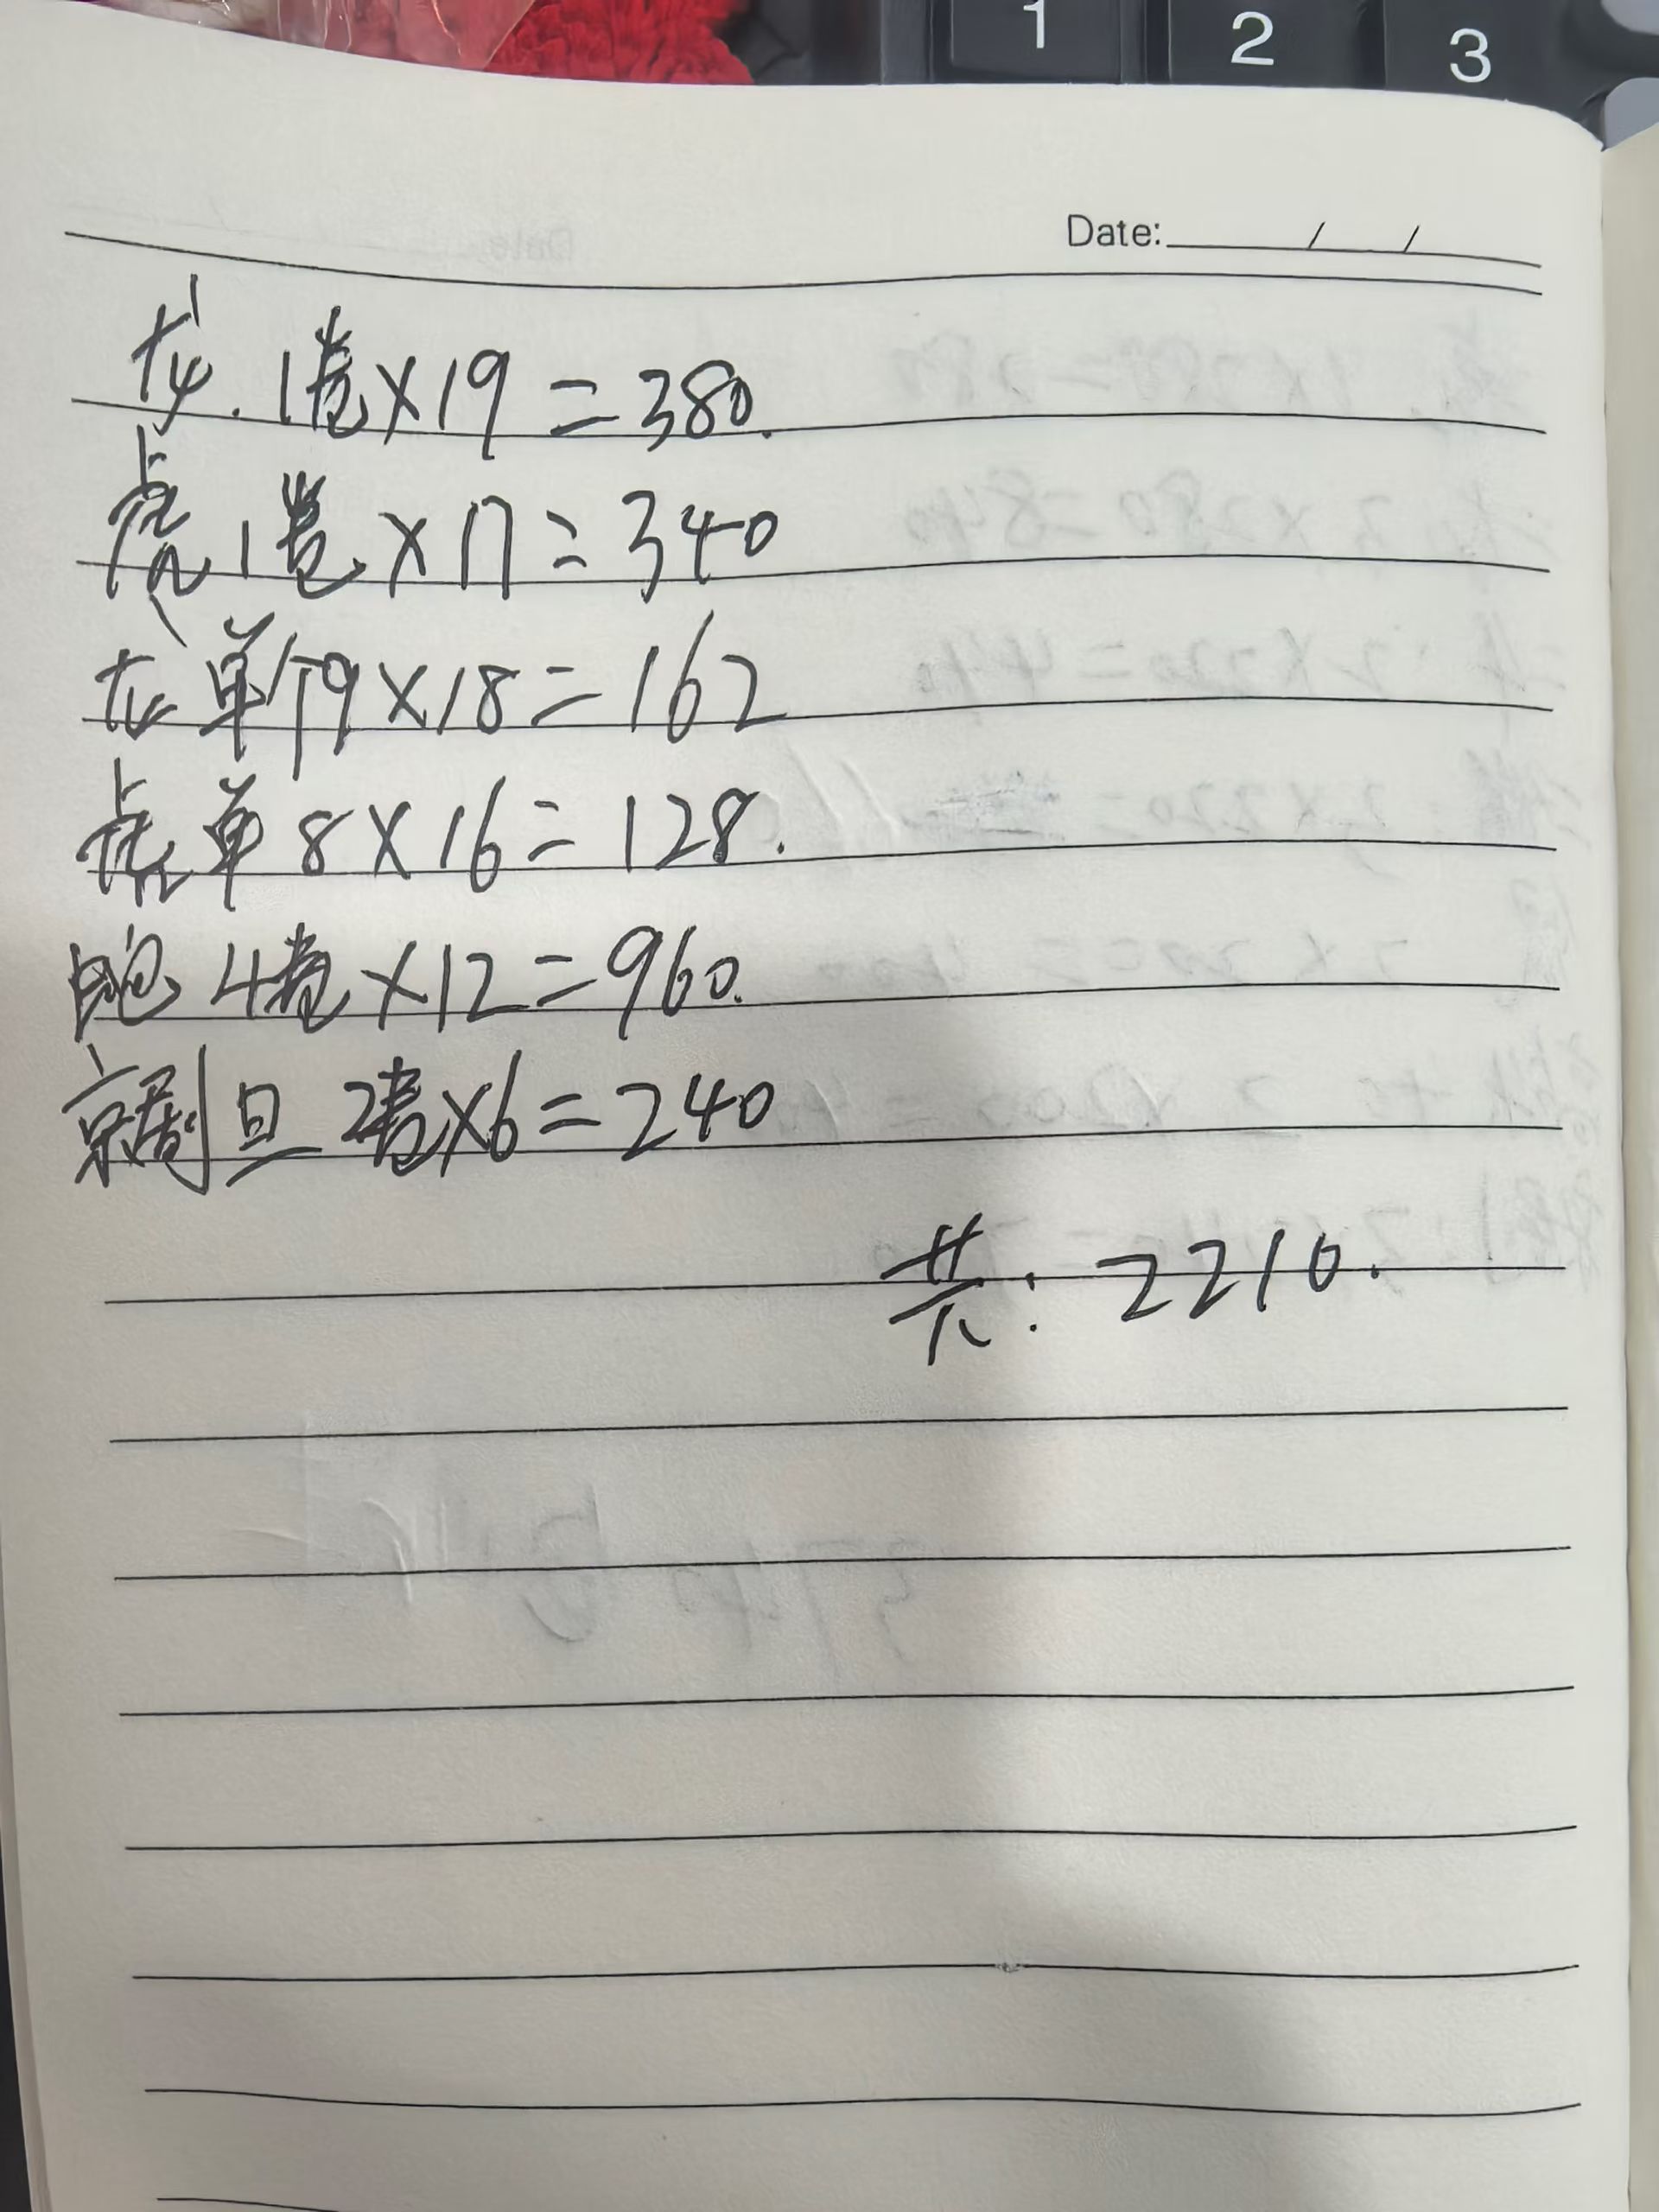 1 2 3
Date: / /
龙. 1卷×19=380.
虎 1卷×17=340
龙 单 9×18=162
虎 单 8×16=128.
4卷×12=960.
京剧 旦 2卷×6=240
共: 2210.